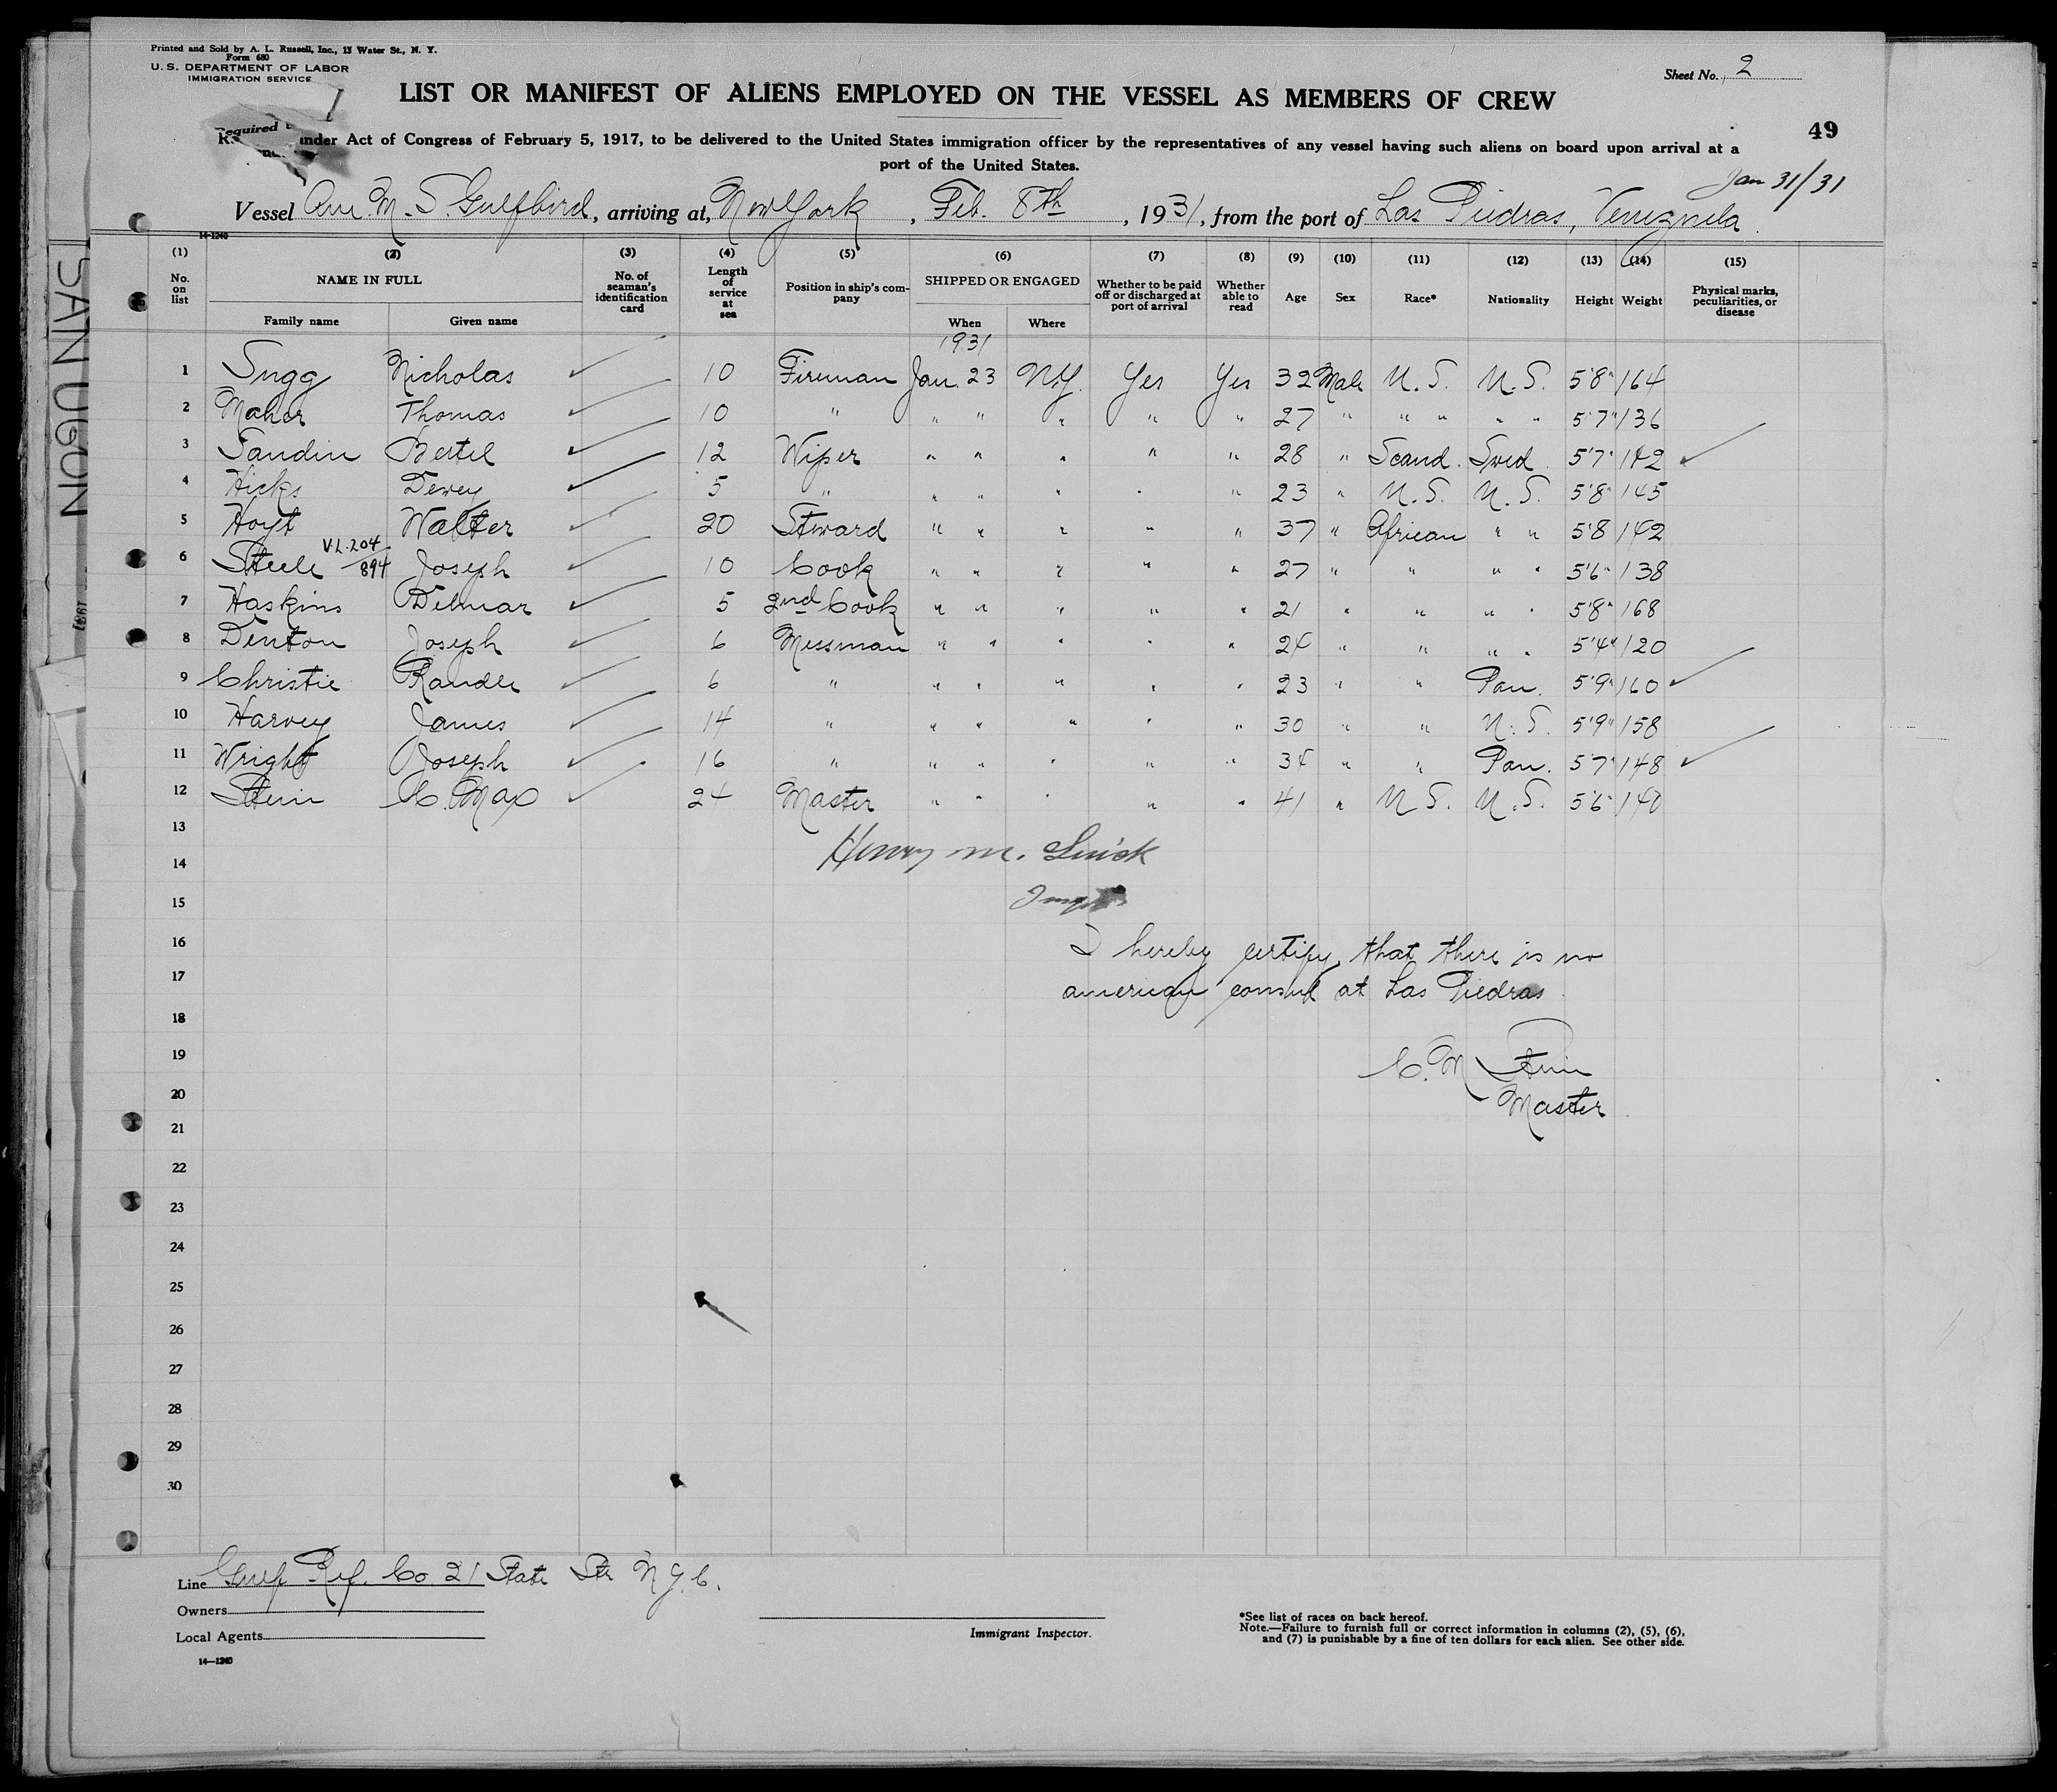 Printed and Sold by A. L. Russell, Inc., 13 Water St., N. Y.
Form 680
U. S. DEPARTMENT OF LABOR
IMMIGRATION SERVICE
Sheet No. 2
LIST OR MANIFEST OF ALIENS EMPLOYED ON THE VESSEL AS MEMBERS OF CREW
49
Required under Act of Congress of February 5, 1917, to be delivered to the United States immigration officer by the representatives of any vessel having such aliens on board upon arrival at a
port of the United States.
Jan 31/31
Vessel Am. M. S. Gulfbird, arriving at, New York, Feb. 8th, 1931, from the port of Las Piedras, Venezuela
14-1240
(1) (2) (3) (4) (5) (6) (7) (8) (9) (10) (11) (12) (13) (14) (15)
No. on list NAME IN FULL No. of seaman's identification card Length of service at sea Position in ship's company SHIPPED OR ENGAGED Whether to be paid off or discharged at port of arrival Whether able to read Age Sex Race* Nationality Height Weight Physical marks, peculiarities, or disease
Family name Given name When Where
1931
1 Sugg Nicholas ✓ 10 Fireman Jan. 23 N.Y. Yes Yes 32 Male U. S. U. S. 5'8" 164
2 Maher Thomas ✓ 10 " " " " " " 27 " " " " " 5'7" 136
3 Sandin Bertel ✓ 12 Wiper " " " " " 28 " Scand. Swed. 5'7" 142 ✓
4 Hicks Dewey ✓ 5 " " " " " " 23 " U. S. U. S. 5'8" 145
5 Hoyt Walter ✓ 20 Steward " " " " " 37 " African " " 5'8 142
6 Steele V.L.204/894 Joseph ✓ 10 Cook " " " " " 27 " " " " 5'6" 138
7 Haskins Delmar ✓ 5 2nd Cook " " " " " 21 " " " " 5'8" 168
8 Denton Joseph ✓ 6 Messman " " " " " 24 " " " " 5'4" 120
9 Christie Randle ✓ 6 " " " " " " 23 " " Pan. 5'9" 160 ✓
10 Harvey James ✓ 14 " " " " " " 30 " " U. S. 5'9" 158
11 Wright Joseph ✓ 16 " " " " " " 34 " " Pan. 5'7" 148 ✓
12 Stein C. Max ✓ 24 Master " " " " " 41 " U S. U. S. 5'6" 140
13
Henry M.
14
15
16
I hereby certify that there is no
17
american consul at Las Piedras
18
19
C. M Stein
20
Master
21
22
23
24
25
26
27
28
29
30
Line Gulf Ref. Co. 21 State Str N.Y.C.
Owners
Local Agents
Immigrant Inspector.
*See list of races on back hereof.
Note.—Failure to furnish full or correct information in columns (2), (5), (6),
and (7) is punishable by a fine of ten dollars for each alien. See other side.
14—1240
SAN UGON